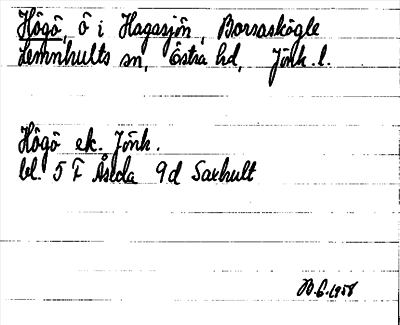 Högö, ö i Hagasjön, Borraskögle
Lemnhults sn, Östra hd, Jönk. l.
Högö ek. Jönk.
bl. 5 F Åseda 9d Saxhult
B.G. 1958